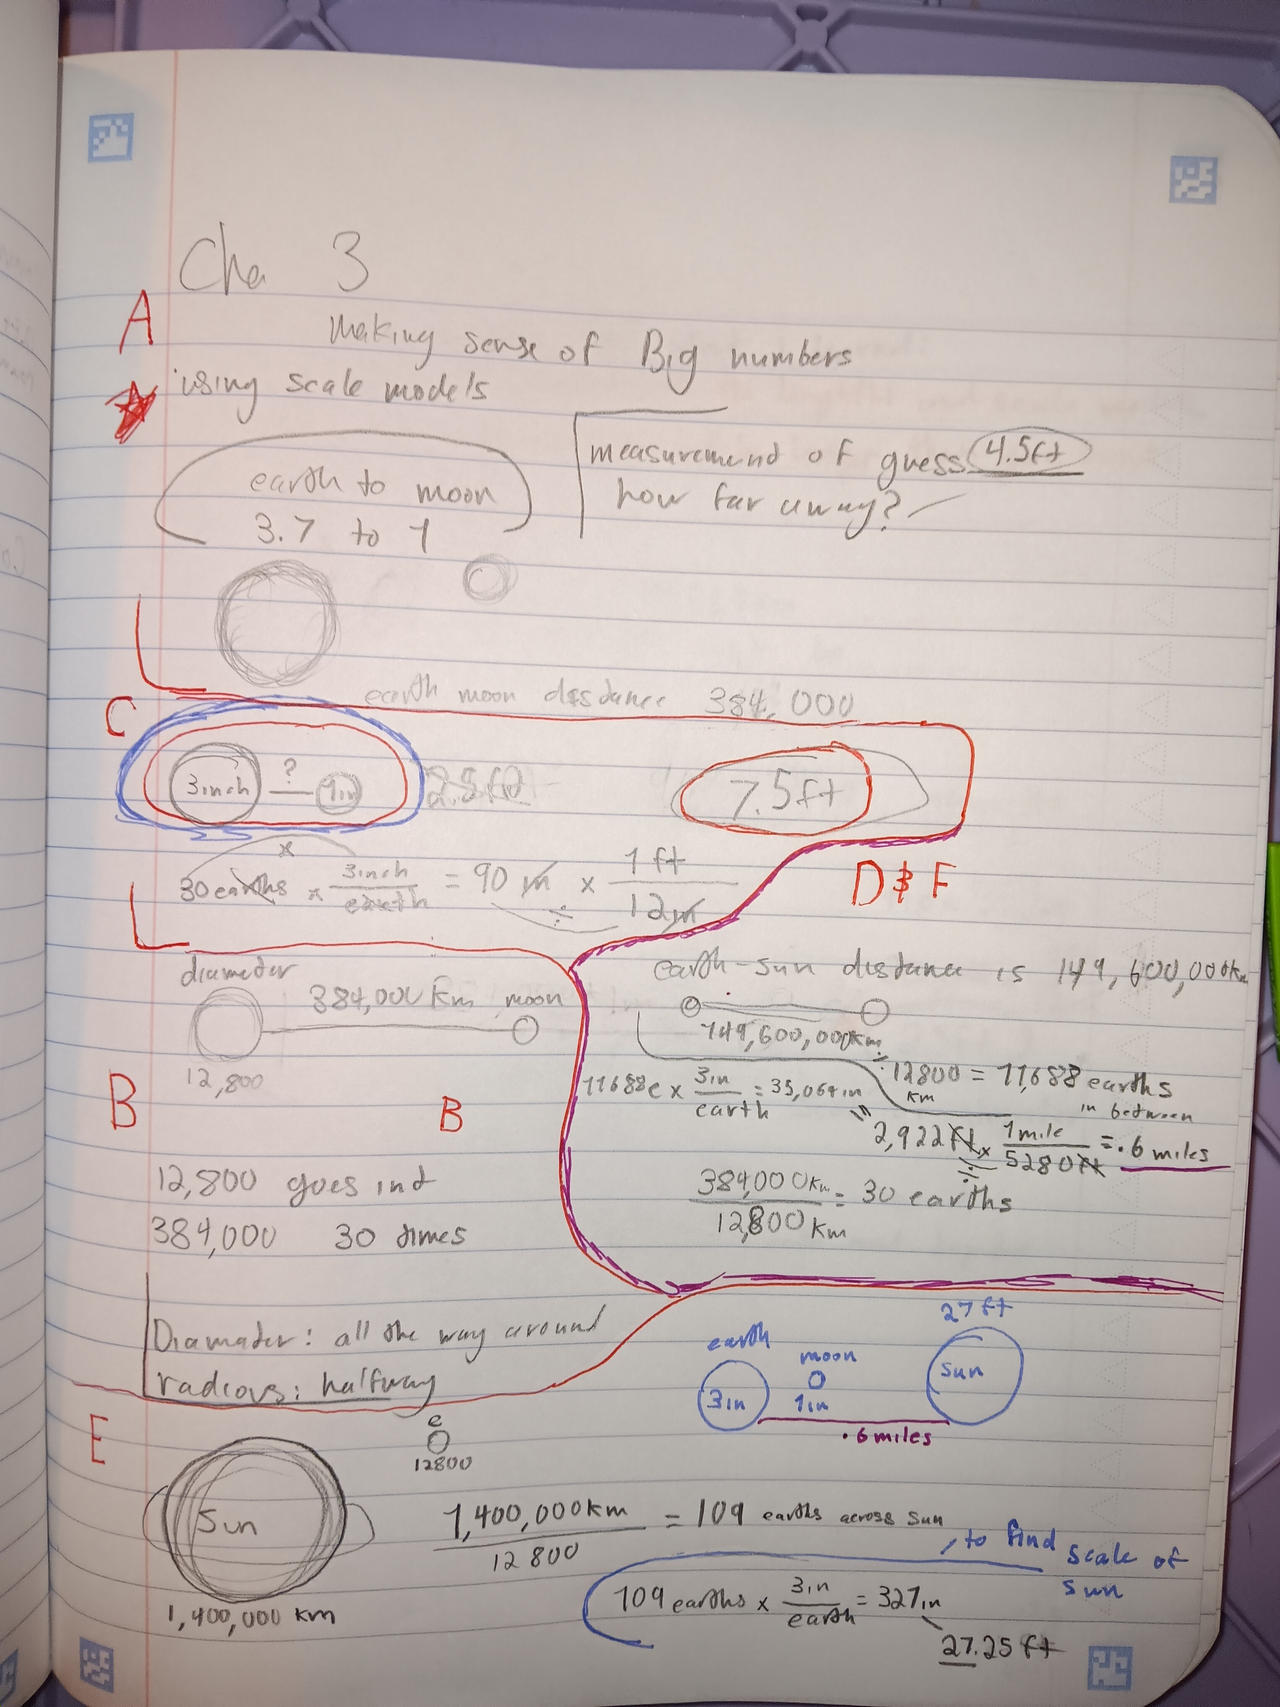 Cha 3
A
Making sense of Big numbers
using scale models
earth to moon
3.7 to 1
measuremend of guess 4.5ft
how far away?
earth moon disdance 384,000
C
3inch ? 1in
7.5ft
30 earths x 3inch/earth = 90 in x 1 ft/12in
÷
D & F
diameder
384,000 Km moon
12,800
earth-sun disdance is 149,600,000km
149,600,000km
÷12800 km = 11,688 earths in between
11688e x 3in/earth = 35,064in
= 2,922ft x 1mile/5280ft = .6 miles
÷
B
B
12,800 goes int
384,000 30 times
384,000Km/12,800 Km = 30 earths
Diamader: all the way around
radious: halfway
27 ft
earth
moon
sun
3in
1in
.6 miles
E
e
12800
Sun
1,400,000 km
1,400,000km/12800 = 109 earths across sun
to find scale of sun
109 earths x 3in/earth = 327in
27.25 ft